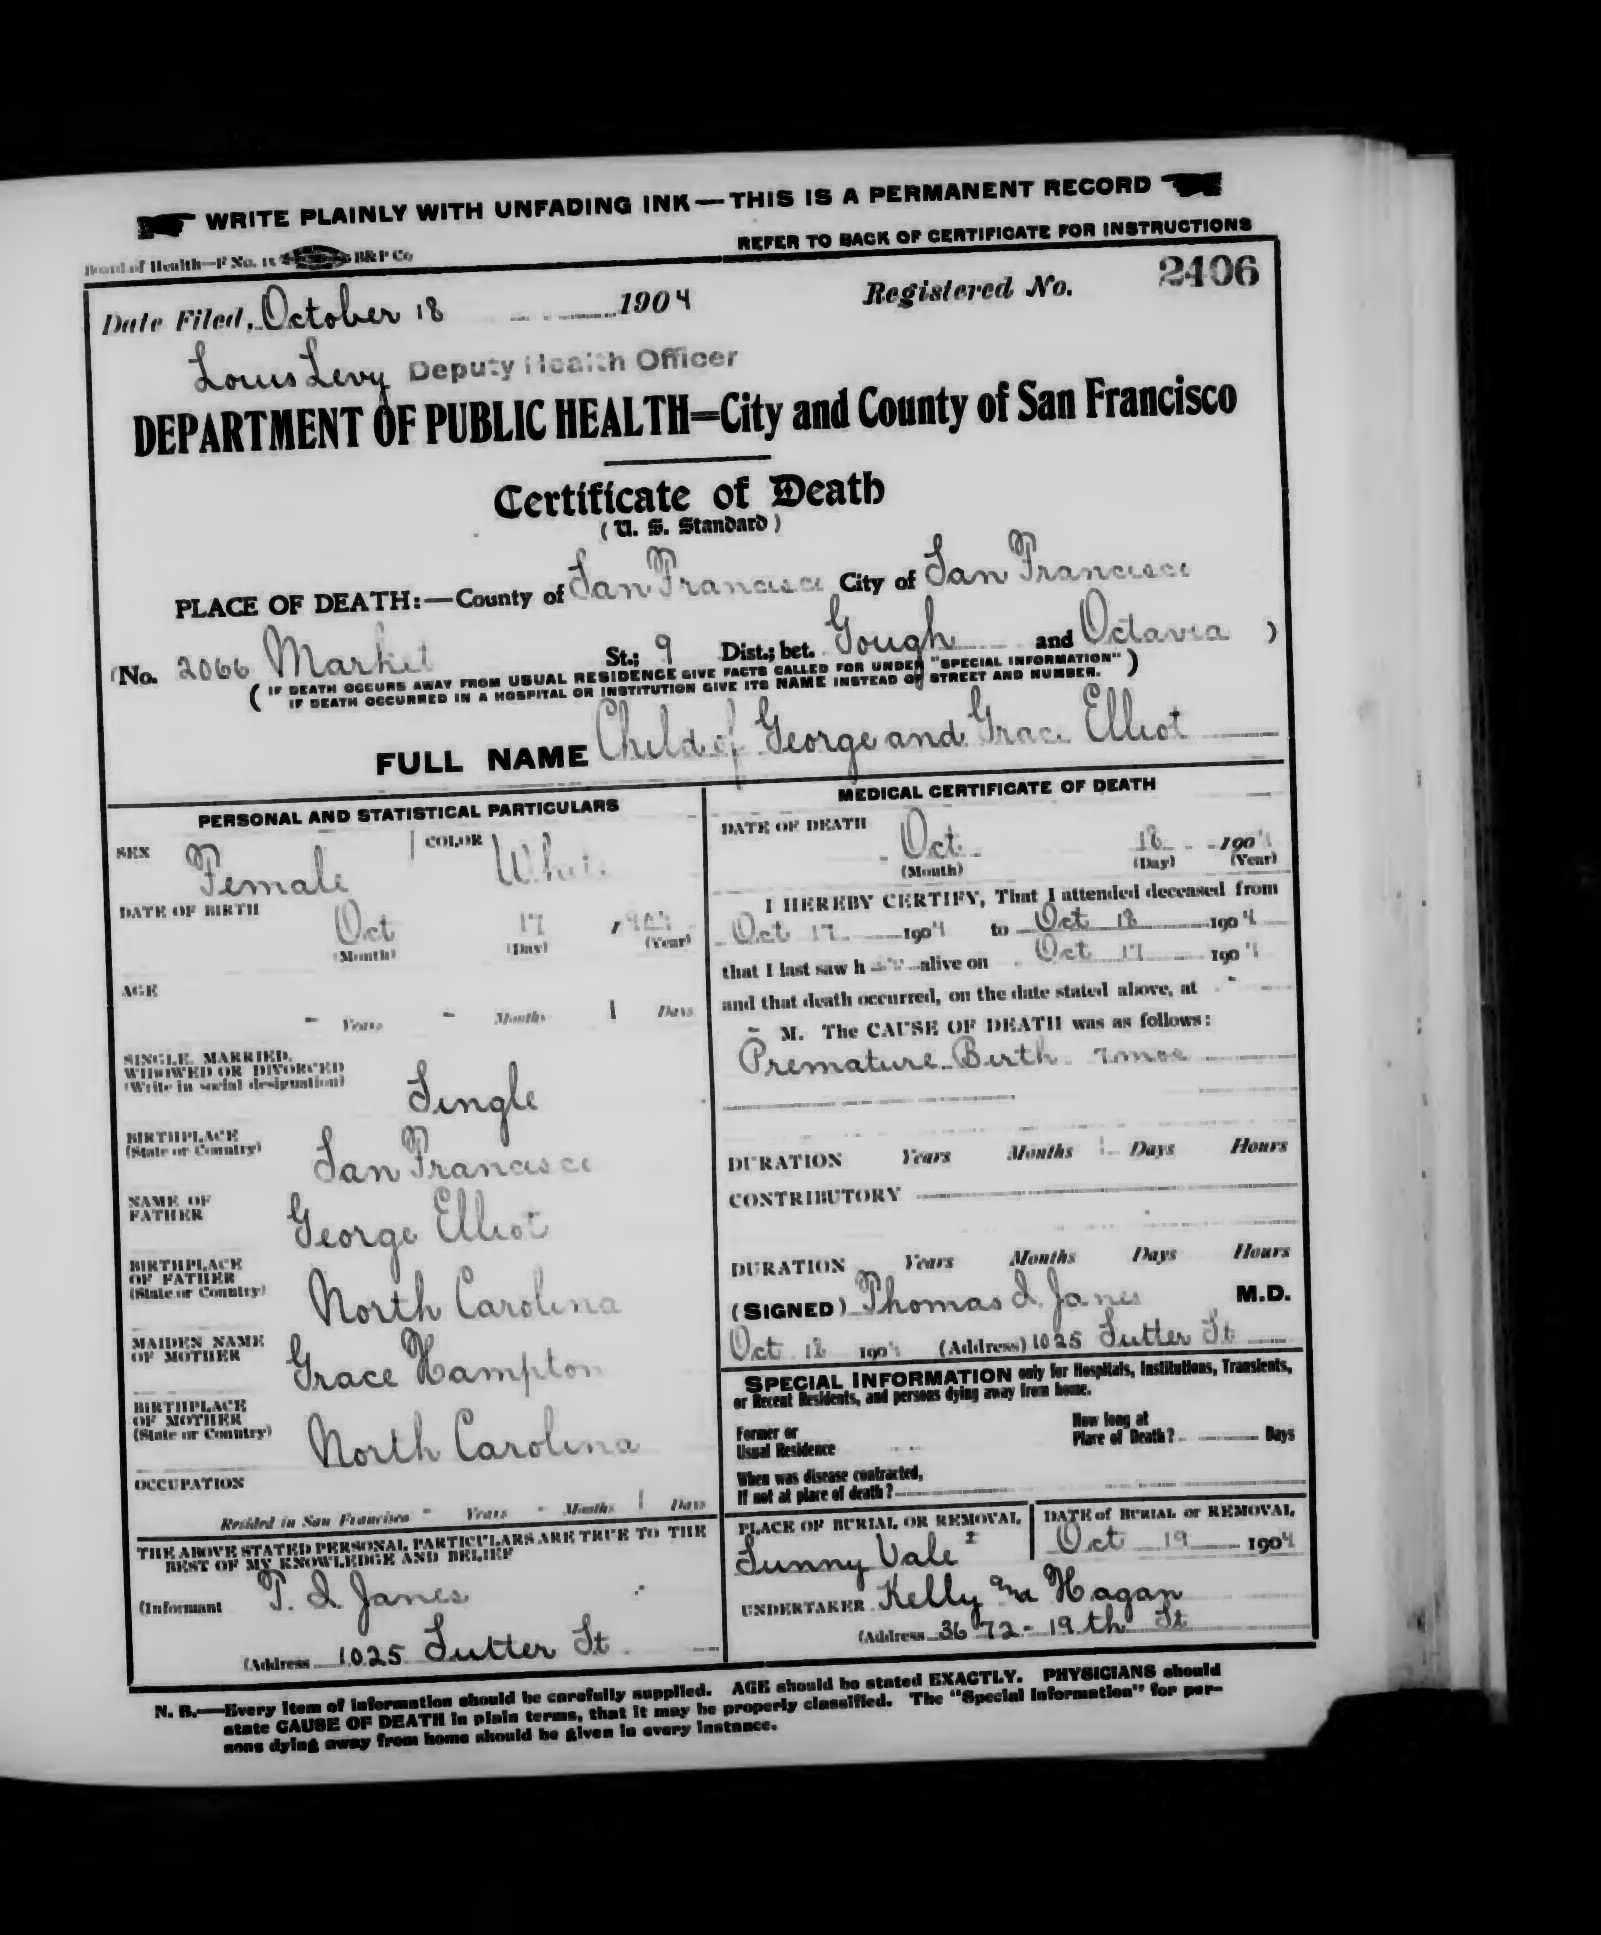 WRITE PLAINLY WITH UNFADING INK—THIS IS A PERMANENT RECORD
Board of Health—F No. B&P Co
REFER TO BACK OF CERTIFICATE FOR INSTRUCTIONS
Date Filed, October 18 1904
Registered No. 2406
Louis Levy Deputy Health Officer
DEPARTMENT OF PUBLIC HEALTH=City and County of San Francisco
Certificate of Death
(U. S. Standard)
PLACE OF DEATH:—County of San Francisco City of San Francisco
(No. 2066 Market St.; 9 Dist.; bet. Gough and Octavia )
( IF DEATH OCCURS AWAY FROM USUAL RESIDENCE GIVE FACTS CALLED FOR UNDER "SPECIAL INFORMATION" )
IF DEATH OCCURRED IN A HOSPITAL OR INSTITUTION GIVE ITS NAME INSTEAD OF STREET AND NUMBER.
FULL NAME Child of George and Grace Elliot
PERSONAL AND STATISTICAL PARTICULARS
SEX Female COLOR White
DATE OF BIRTH
Oct 17, 1904
(Month) (Day) (Year)
AGE
- Years - Months 1 Days
SINGLE, MARRIED,
WIDOWED OR DIVORCED
(Write in social designation)
Single
BIRTHPLACE
(State or Country)
San Francisco
NAME OF
FATHER
George Elliot
BIRTHPLACE
OF FATHER
(State or Country)
North Carolina
MAIDEN NAME
OF MOTHER
Grace Hampton
BIRTHPLACE
OF MOTHER
(State or Country)
North Carolina
OCCUPATION
Resided in San Francisco - Years - Months 1 Days
THE ABOVE STATED PERSONAL PARTICULARS ARE TRUE TO THE
BEST OF MY KNOWLEDGE AND BELIEF
(Informant T. I. Janes
(Address 1025 Sutter St
MEDICAL CERTIFICATE OF DEATH
DATE OF DEATH
Oct 18 1904
(Month) (Day) (Year)
I HEREBY CERTIFY, That I attended deceased from
Oct 17 1904 to Oct 18 1904
that I last saw h er alive on Oct 17 1904
and that death occurred, on the date stated above, at -
- M. The CAUSE OF DEATH was as follows:
Premature Birth 7 mos
DURATION Years Months 1 Days Hours
CONTRIBUTORY
DURATION Years Months Days Hours
(SIGNED) Thomas I. Janes M.D.
Oct 18 1904 (Address) 1025 Sutter St
SPECIAL INFORMATION only for Hospitals, Institutions, Transients,
or Recent Residents, and persons dying away from home.
Former or
Usual Residence
How long at
Place of Death? Days
When was disease contracted,
If not at place of death?
PLACE OF BURIAL OR REMOVAL
Sunny Vale
DATE of BURIAL or REMOVAL
Oct 19 1904
UNDERTAKER Kelly and Hagan
(Address 3672-19th St
N. B.—Every item of information should be carefully supplied. AGE should be stated EXACTLY. PHYSICIANS should
state CAUSE OF DEATH in plain terms, that it may be properly classified. The "Special Information" for per-
sons dying away from home should be given in every instance.